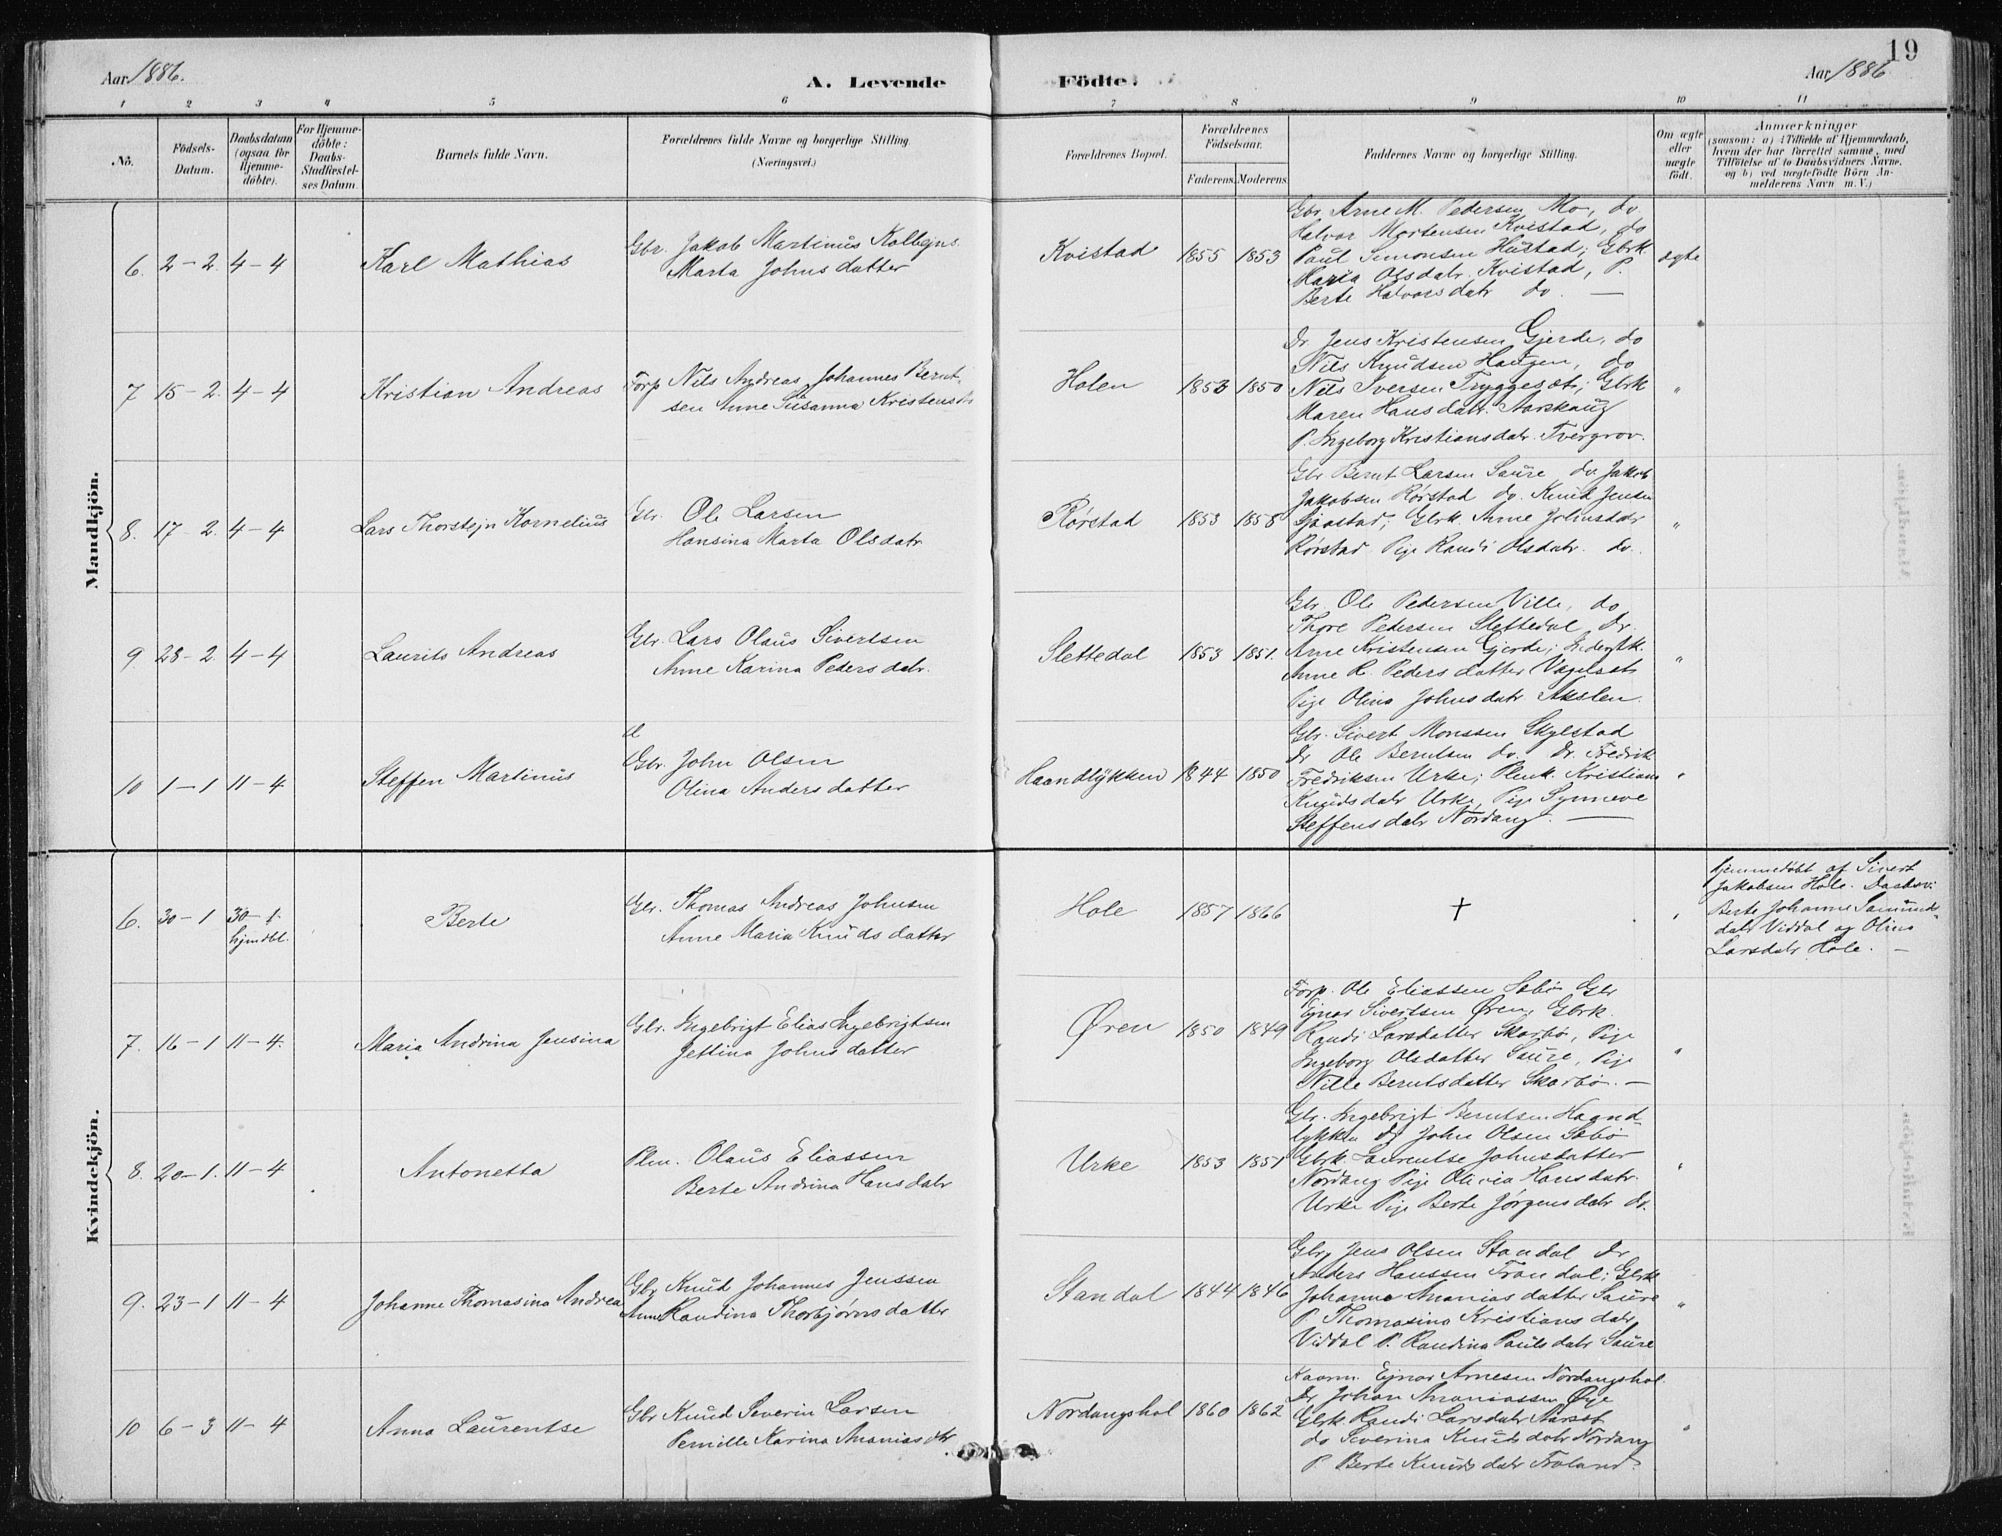 19
Aar 1886.
A. Levende
Födte.
Aar 1886
1 2 3 4 5 6 7 8 9 10 11
No.
Födsels-
Datum.
Daabsdatum
(ogsaa for
Hjemme-
döbte).
For Hjemme-
döbte:
Daabs-
Stadfæstel-
ses Datum.
Barnets fulde Navn.
Forældrenes fulde Navne og borgerlige Stilling.
(Næringsvei.)
Forældrenes Bopæl.
Forældrenes
Födselsaar.
Faderens. Moderens.
Faddernes Navne og borgerlige Stilling.
Om ægte
eller
uægte
födt.
Anmærkninger
(saasom: a) i Tilfælde af Hjemmedaab,
hvem der har forrettet samme, med
Tilföielse af to Daabsvidners Navne,
og b) ved uægtefödte Börn An-
melderens Navn m. V.)
Mandkjön.
6. 2-2. 4-4
Karl Mathias
Gbr. Jakob Martinus Kolbejns.
Marta Johnsdatter
Kvistad
1855 1853
Gbr. Arne M. Pedersen Mo, do
Halvor Mortensen Kvistad, do
Paul Simonsen Hustad; Gbrk
Maria Olsdatr. Kvistad, P.
Berte Halvorsdatr do. —
ægte
7 15-2. 4-4
Kristian Andreas
Forp Nils Andreas Johannes Bernt-
sen Anne Susanna Kristensdtr
Holen
1853 1850
Dr. Jens Kristensen Gjerde, do
Nils Knudsen Haugen, do
Nils Iversen Tryggesæt; Gbrk
Maren Hansdatr. Aarskaug
P. Ingeborg Kristiansdatr. Tvergrov.
"
8. 17-2. 4-4
Lars Thorstejn Kornelius
Gbr. Ole Larsen
Hansina Marta Olsdatr
Rørstad
1853 1858
Gbr Bernt Larsen Saure do. Jakob
Jakobsen Rørstad do. Knud Jensen
Sjaastad; Gbrk. Anne Johnsdatr
Rørstad Pige Randi Olsdatr. do.
"
9 28-2. 4-4
Laurits Andreas
Gbr. Lars Olaus Sivertsen
Anne Karina Pedersdatr.
Slettedal
1853 1851.
Gbr Ole Pedersen Ville, do
Thore Pedersen Slettedal Dr.
Arne Kristensen Gjerde;
Anne R. Pedersdatter
Pige Olina Johnsdatr Akslen.
"
10 1-1 11-4
Steffen Martinus
Gbr. John Olsen
Olina Andersdatter
Haandlykken
1844 1850
Gbr. Sivert Monssen Skylstad
Dr Ole Berntsen do. Dr. Fredrik
Fredriksen Urke; Plenk. Kristiane
Knudsdatr Urke, Pige Synneve
Steffensdatr Nordang. —
"
Kvindekjön.
6. 30-1 30-1.
hjmdbt.
Berte
Gbr. Thomas Andreas Johnsen
Anne Maria Knudsdatter
Hole
1857 1866
†
"
hjemmedøbt af Sivert
Jakobsen Hole. Daabsvi:
Berte Johanne Samunds-
datr Viddal og Olina
Larsdatr Hole. —
7. 16-1 11-4.
Maria Andrina Jensina
Gbr. Ingebrigt Elias Ingebrigtsen
Jettina Johnsdatter
Øren
1850 1849
Forp. Ole Eliassen Sæbø Gbr
Ejnar Sivertsen Øren; Gbrk.
Randi Larsdatter Skarbø, Pige
Ingeborg Olsdatter Saure, Pige
Nille Berntsdatter Skarbø. —
"
8. 20-1. 11-4
Antonetta
Plm. Olaus Eliassen
Berte Andrina Hansdatr
Urke
1853 1851
Gbr. Ingebrigt Berntsen Haand-
lykken Dr John Olsen Sæbø
Gbrk Laurentse Johnsdatter
Nordang Pige Olivia Hansdatr.
Urke Pige Berte Jørgensdatr do.
"
9. 23-1 11-4
Johanne Thomasina Andrea
Gbr Knud Johannes Jenssen
Anne Randina Thorbjørnsdatter
Standal
1844 1846
Gbr, Jens Olsen Standal Dr
Anders Hanssen Trandal; Gbrk
Johanne Ananiasdatter Saure
P. Thomasina Kristiansdatr
Viddal P. Randina Paulsdatr Saure
"
10 6-3 11-4
Anna Laurentse
Gbr Knud Severin Larsen
Pernille Karina Ananiasdtr
Nordangshol
1860 1862
Kaarm. Ejnar Arnesen Nordangshol.
Dr Johan Ananiassen Øye
Gbrk. Randi Larsdatr Aarset
do Severina Knudsdatr Nordang
P Berte Knudsdatr
"